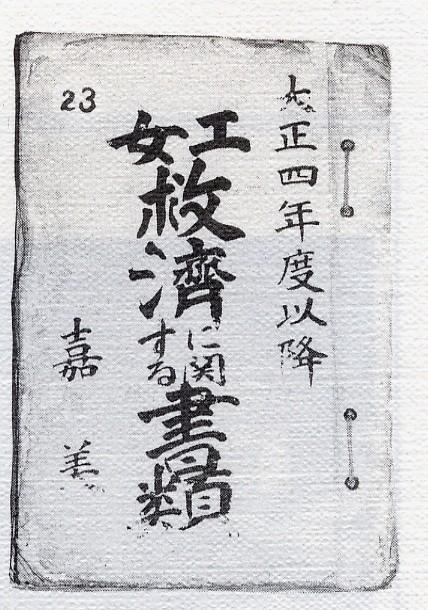 大正四年度以降
工女救濟に関する書類
嘉美
23